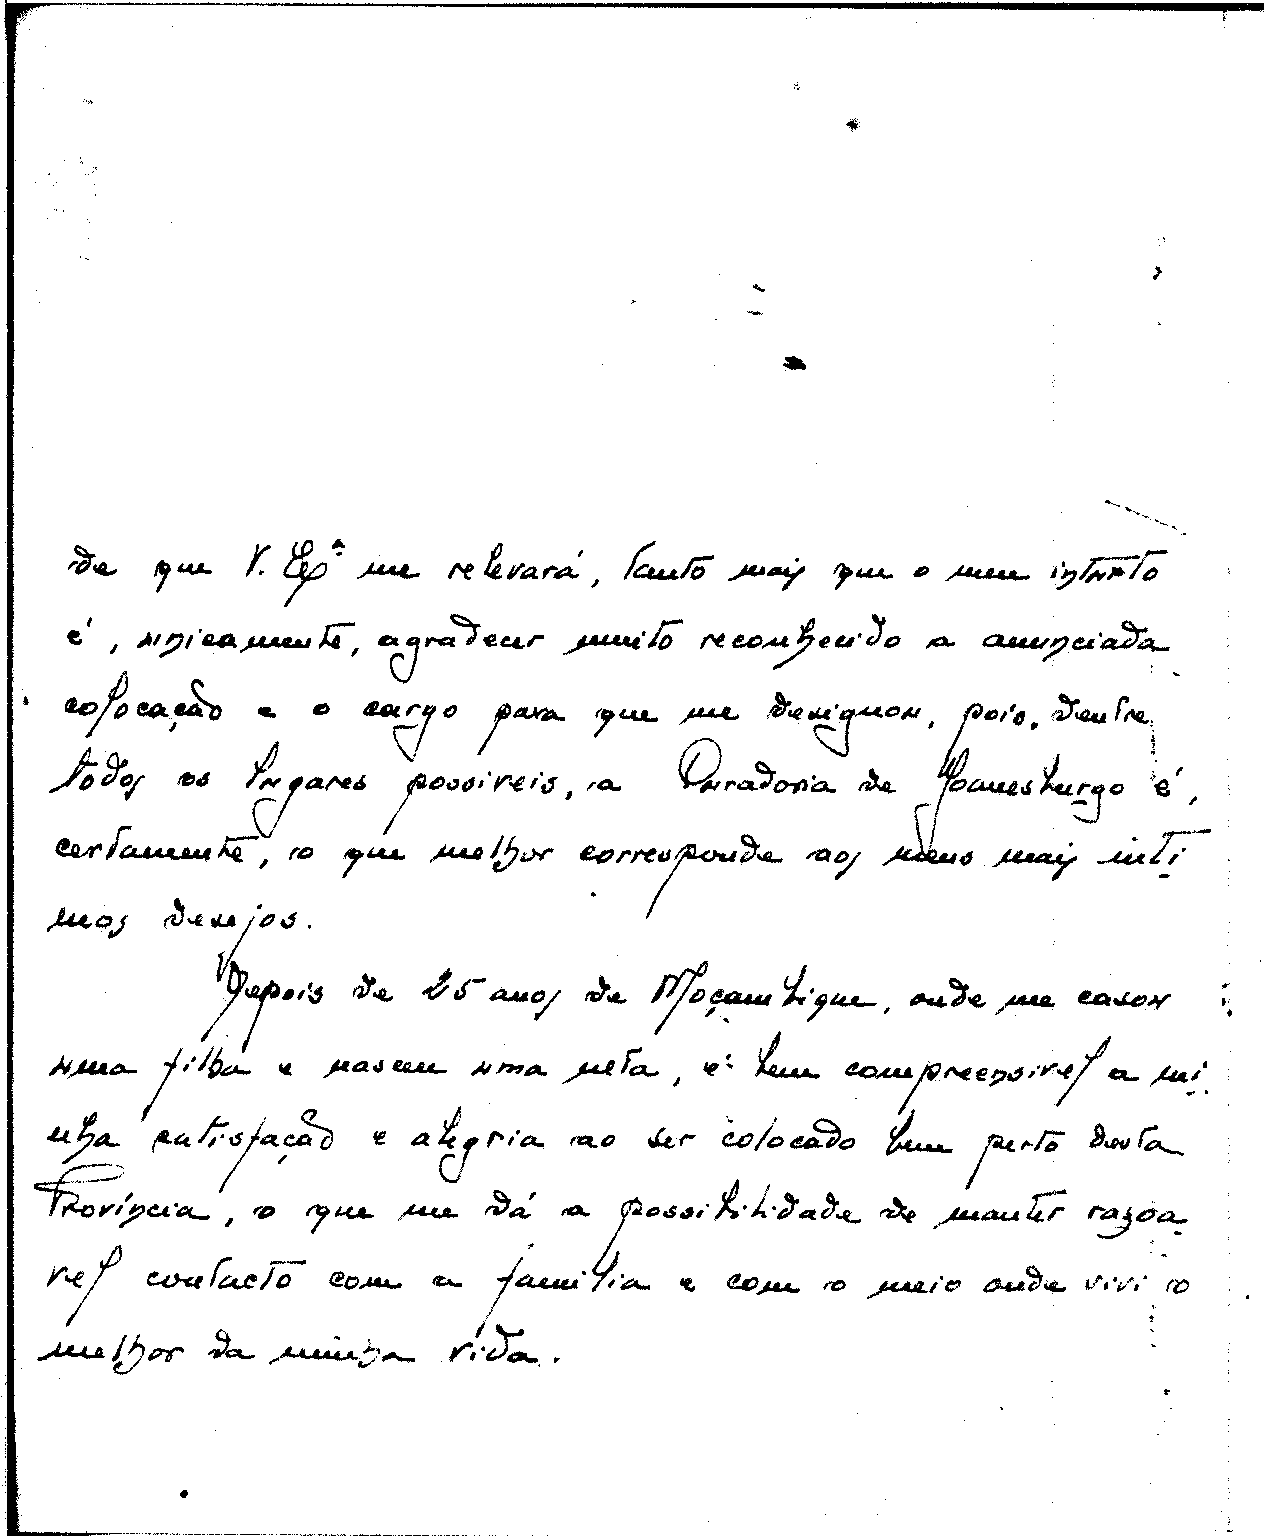 de que V. Exª me relevará, tanto mais que o meu intuito
é, unicamente, agradecer muito reconhecido a anunciada
colocação e o cargo para que me designou, pois, dentre
todos os lugares possiveis, a Curadoria de Joanesburgo é,
certamente, o que melhor corresponde aos meus mais inti
mos desejos.
Depois de 25 anos de Moçambique, onde me casou
uma filha e nasceu uma neta, é bem compreensivel a mi
nha satisfação e alegria ao ser colocado bem perto desta
Província, o que me dá a possibilidade de manter razoa
vel contacto com a familia e com o meio onde vivi o
melhor da minha vida.